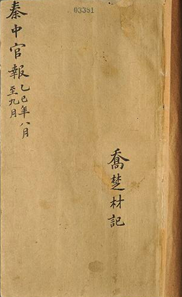 63381
秦中官報
乙巳年八月
至九月
喬楚材記